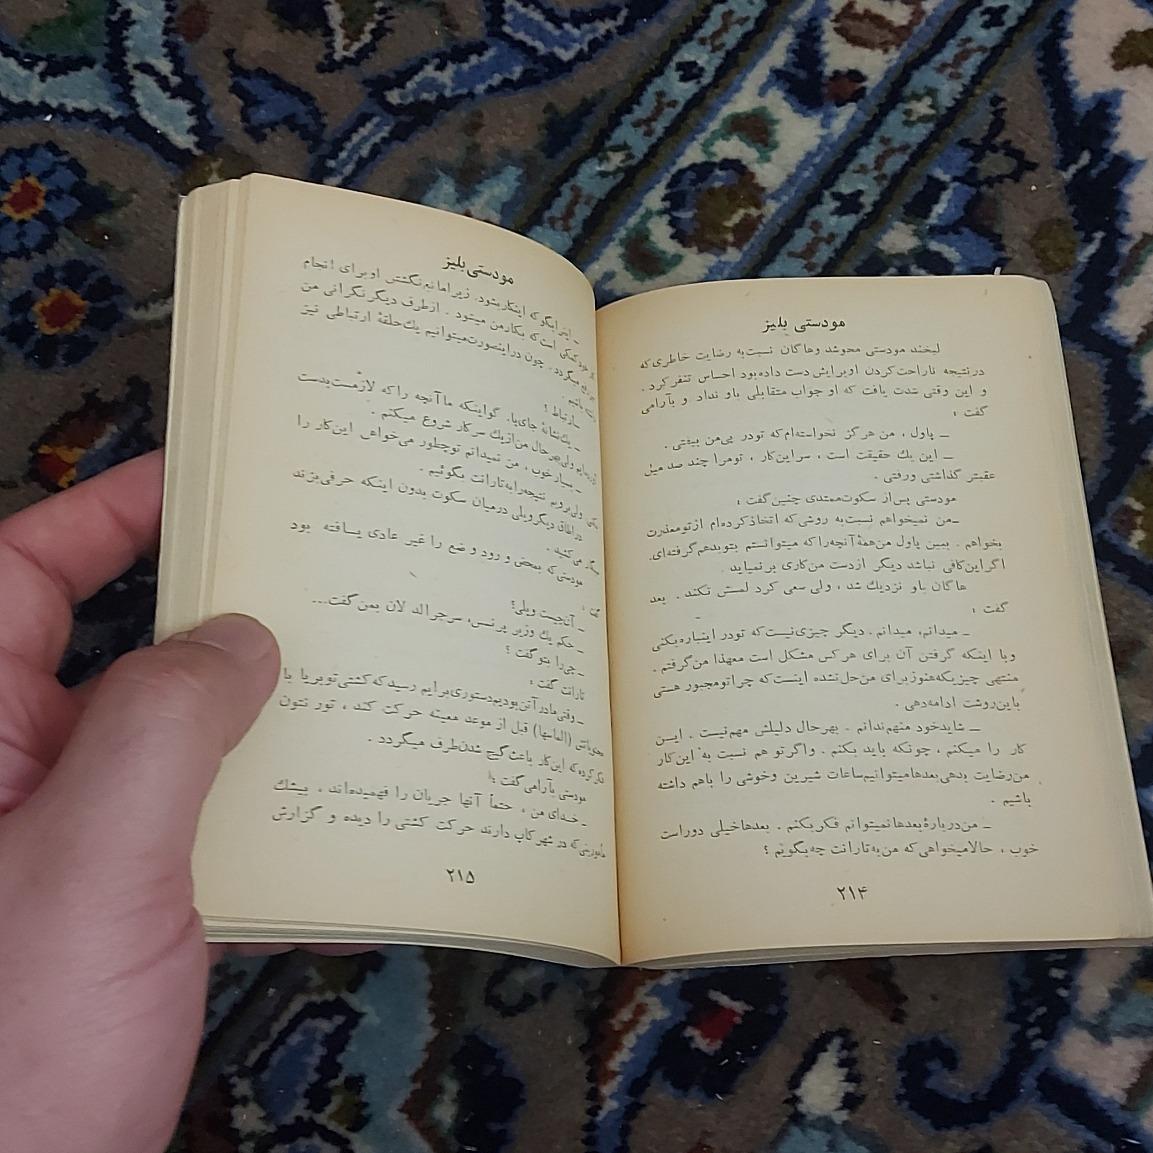 مودستی بلیز
لبخند مودستی محوشد وهاگان نسبت به رضایت خاطری که
در نتیجه ناراحت کردن او برایش دست داده بود احساس تنفر کرد .
و این وقتی شدت یافت که او جواب متقابلی باو نداد و بآرامی
گفت :
ـ پاول ، من هرگز نخواسته‌ام که تودر پی من بیفتی .
ـ این یك حقیقت است ، سر این کار ، تو مرا چند صد میل
عقبتر گذاشتی ورفتی .
مودستی پس از سکوت ممتدی چنین گفت :
ـ من نمیخواهم نسبت به روشی که اتخاذ کرده‌ام از تو معذرت
بخواهم . ببین پاول من همهٔ آنچه را که میتوانستم بتو بدهم گرفته‌ای
اگر این کافی نباشد دیگر از دست من کاری بر نمیاید .
هاگان باو نزدیك شد ، ولی سعی کرد لمسش نکند . بعد
گفت :
ـ میدانم، میدانم . دیگر چیزی نیست که تودر اینباره بکنی
و با اینکه گرفتن آن برای هر کس مشکل است معهذا من گرفتم .
منتهی چیزیکه هنوز برای من حل نشده اینست که چرا تو مجبور هستی
باین روشت ادامه دهی .
ـ شاید خود منهم ندانم . بهر حال دلیلش مهم نیست . ایـن
کار را میکنم ، چونکه باید بکنم . واگر تو هم نسبت به این کار
من رضایت بدهی بعدها میتوانیم ساعات شیرین وخوشی را باهم داشته
باشیم .
ـ من دربارهٔ بعدها نمیتوانم فکر بکنم . بعدها خیلی دوراست
خوب ، حالا میخواهی که من به تارانت چه بگویم ؟
۲۱۴
مودستی بلیز
ـ اینرا بگو که اینکار بشود. زیرا مانع نگشتی او برای انجام
کمکی است که بکار من میشود . از طرف دیگر نگرانی من
میگردد . چون در اینصورت میتوانیم یك حلقهٔ ارتباطی نیز
باشیم .
ـ ارتباط !
ـ یك نشانهٔ جای پا. گو اینکه ما آنچه را که لازمست بدست
ولی بهر حال من از یك سر کار شروع میکنم .
ـ بسیار خوب ، من نمیدانم تو چطور می‌خواهی این کار را
بکنی ولی برویم نتیجه را به تارانت بگوئیم .
در اطاق دیگر ویلی در میان سکوت بدون اینکه حرفی بزند
سیگار می‌کشید .
مودستی که بمحض ورود وضع را غیر عادی یـافته بود
گفت :
ـ آن چیست ویلی؟
ـ حکم یك وزیر پرنس، سر جرالد لان بمن گفت...
ـ چی را بتو گفت ؟
تارانت گفت :
ـ وقتی مادر آتن بودیم دستوری برایم رسید که کشتی تو بریا با
محتویاتش (الماسها) قبل از موعد معینه حرکت کند ، تور نتون
فکر کرده که این کار باعث گیج شدن طرف میگردد .
مودستی بآرامی گفت :
ـ خـدای من ، حتماً آنها جریان را فهمیده‌اند ، بیشك
مأمورینی که در شهر کاپ دارند حرکت کشتی را دیده و گزارش
۲۱۵